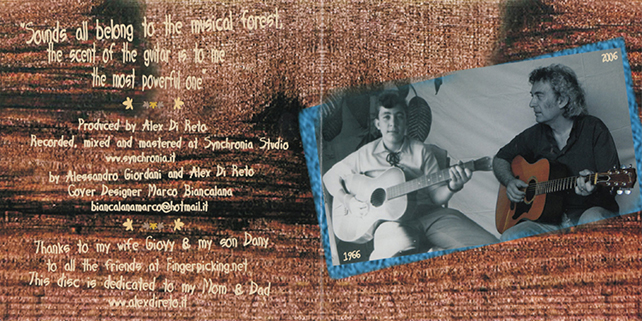 "Sounds all belong to the musical forest,
the scent of the guitar is to me
the most powerful one"
Produced by Alex Di Reto
Recorded, mixed and mastered at Synchronia Studio
www.synchronia.it
by Alessandro Giordani and Alex Di Reto
Cover Designer Marco Biancalana
biancalanamarco@hotmail.it
Thanks to my wife Gioyy & my son Dany
to all the friends at Fingerpicking.net
This disc is dedicated to my Mom & Dad
www.alexdireto.it
2006
1966